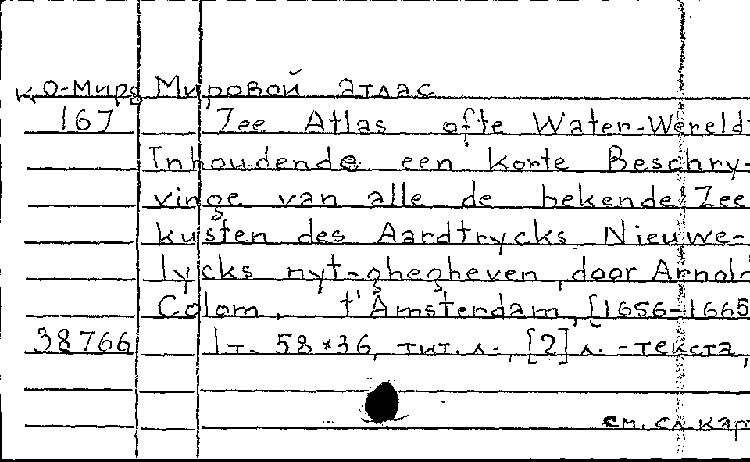 КО-Мира Мировой атлас
167 Zee Atlas ofte Water-Wereldt
Inhoudende een korte Beschry-
vinge van alle de bekende Zee
kusten des Aardtrycks Nieuwe-
lycks nyt-ghegheven, door Arnold
Colom. t'Amsterdam, [1656-1665
38766 1т. 58*36, тит. л., [2] л. -текста,
см. сл. кар